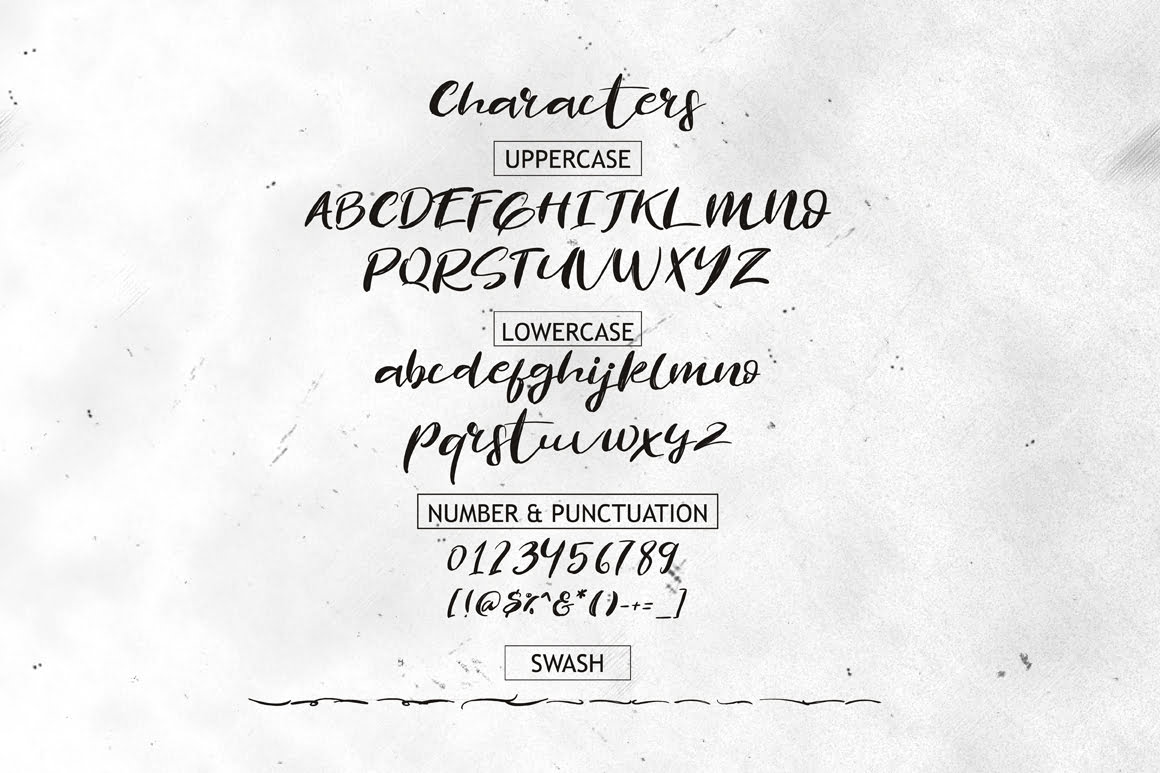 Characters
UPPERCASE
ABCDEFGHIJKLMNO
PQRSTUVWXYZ
LOWERCASE
abcdefghijklmno
pqrstuvwxyz
NUMBER & PUNCTUATION
0123456789
[!@$%^&*()-+=_]
SWASH